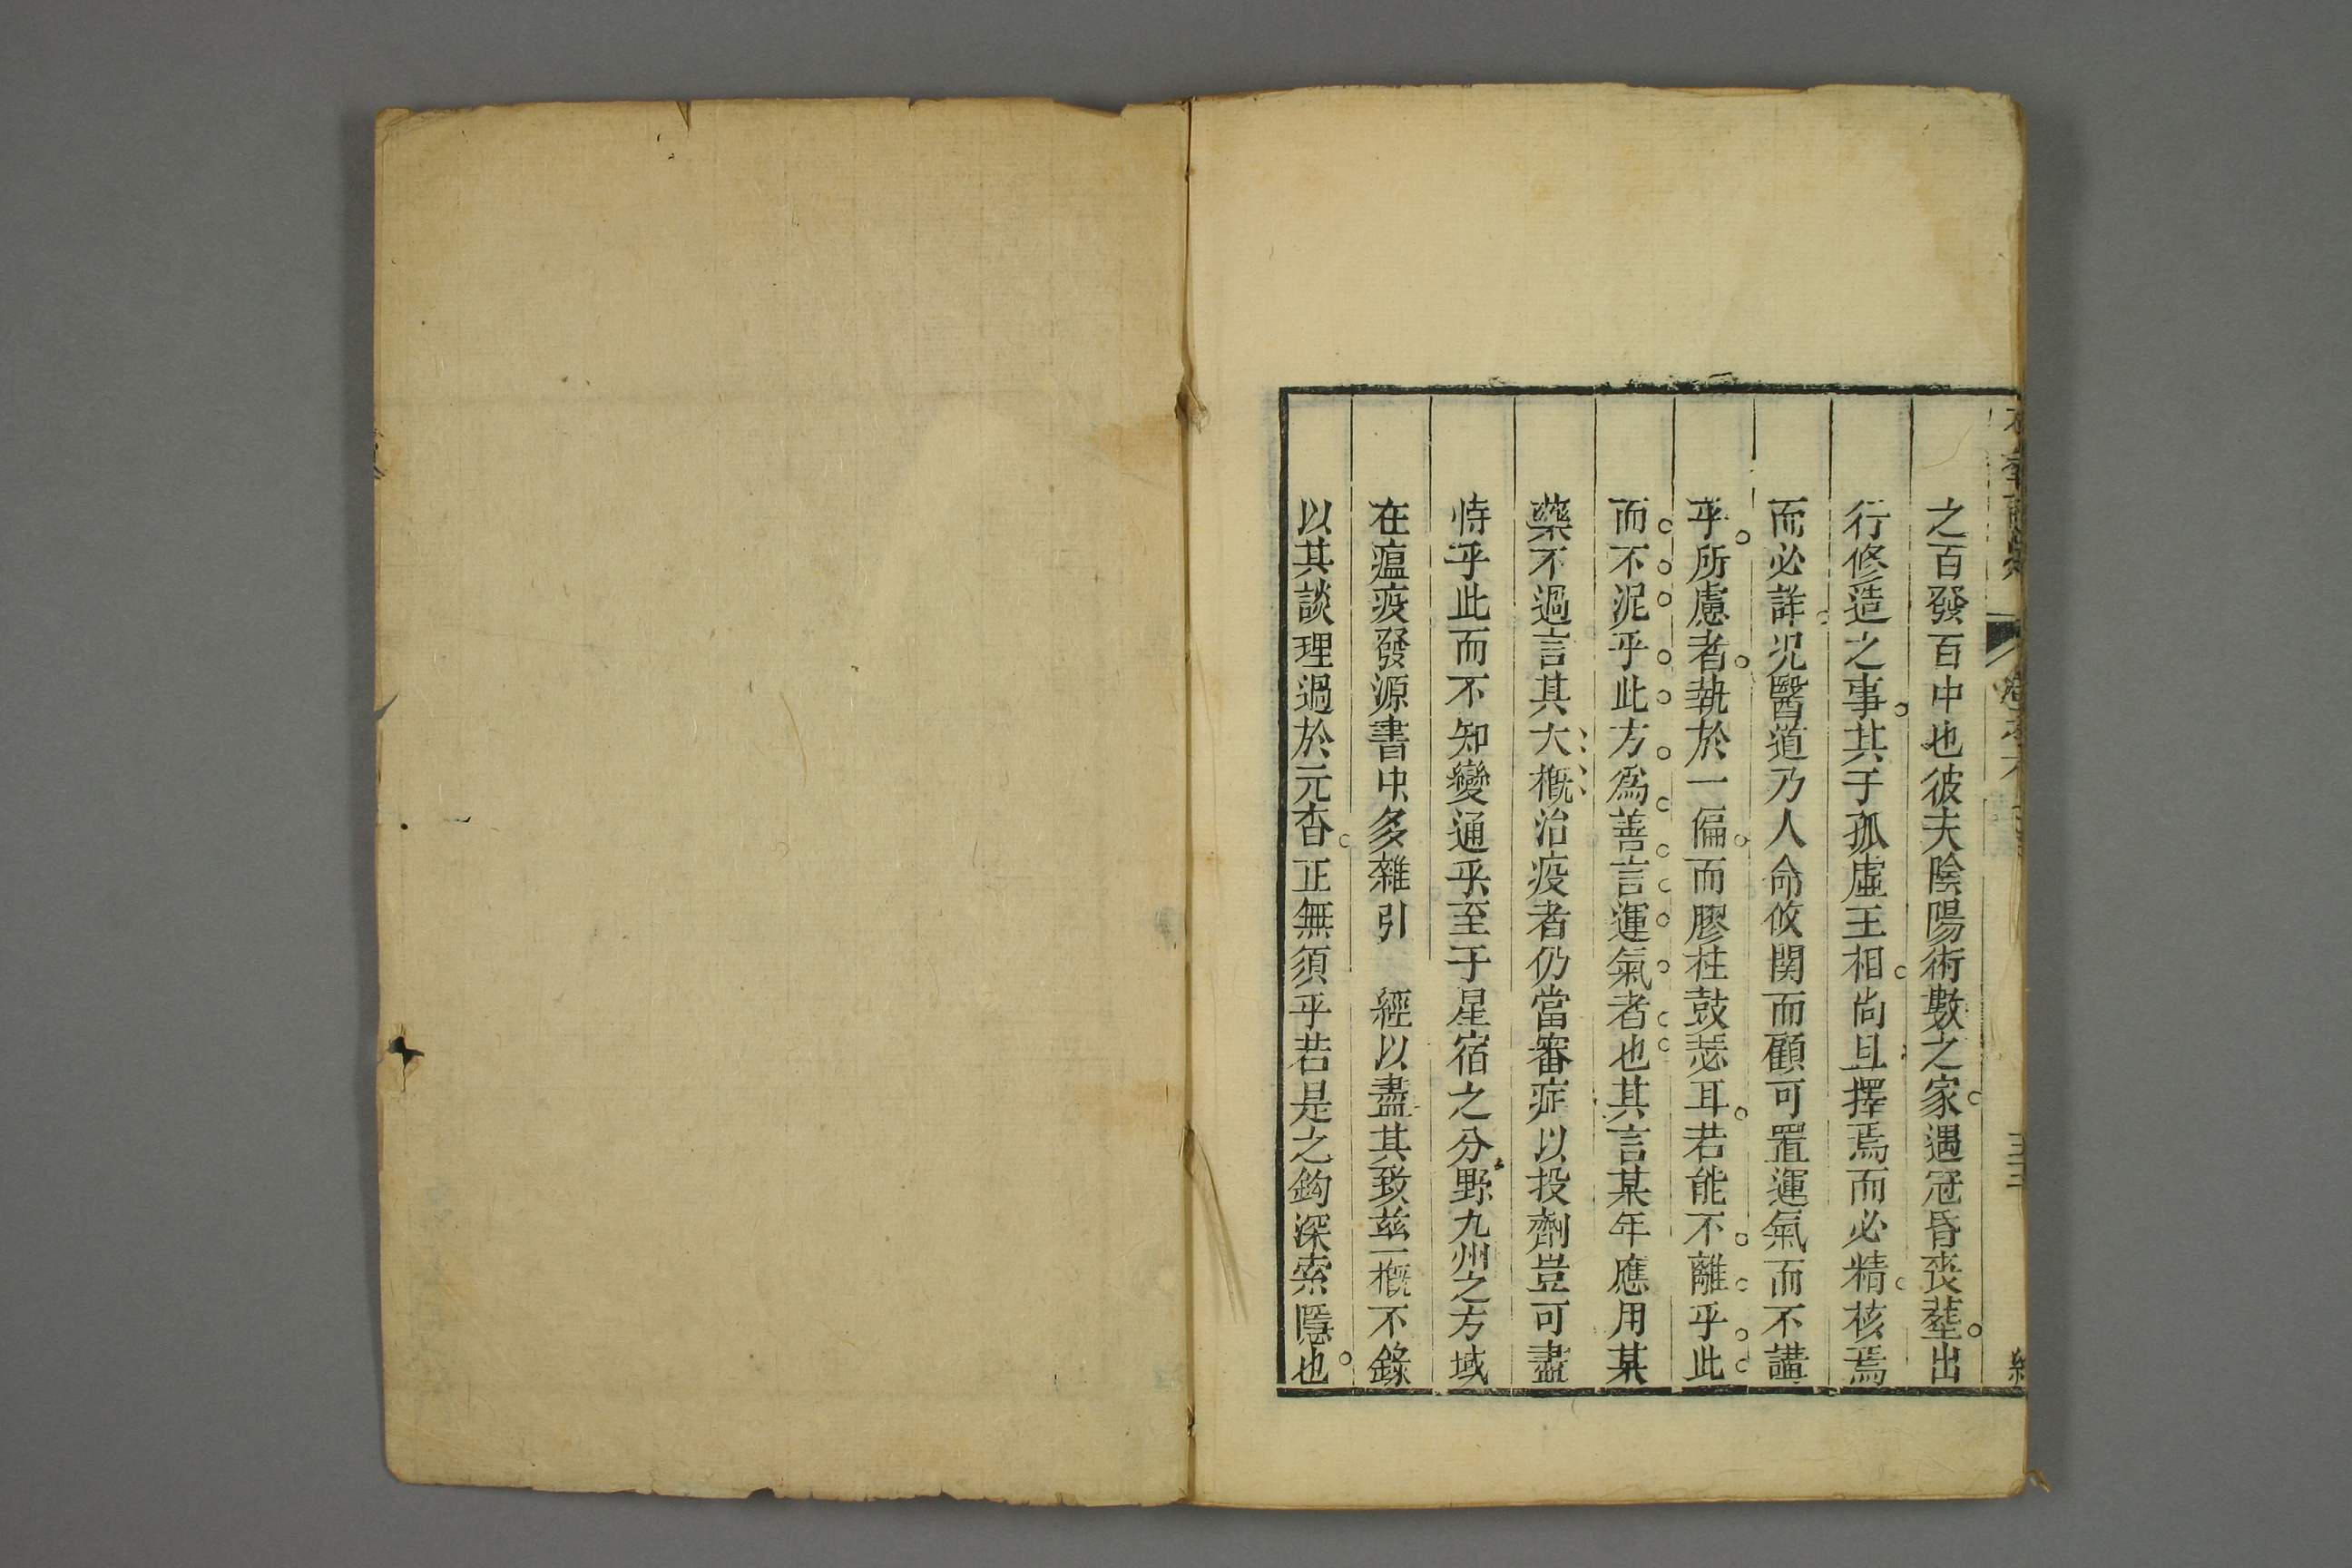 之百發百中也彼夫陰陽術數之家遇冠昏喪塟出
行修造之事其于孤虛王相尚且擇焉而必精核焉
而必詳况醫道乃人命攸関而顧可置運氣而不講
乎所慮者執於一偏而膠柱鼓瑟耳若能不離乎此
而不泥乎此方爲善言運氣者也其言某年應用某
藥不過言其大槪治疫者仍當審症以投劑豈可盡
恃乎此而不知變通乎至于星宿之分野九州之方域
在瘟疫發源書中多雜引　經以盡其致茲一槪不錄
以其談理過於元杳正無須乎若是之鈎深索隱也